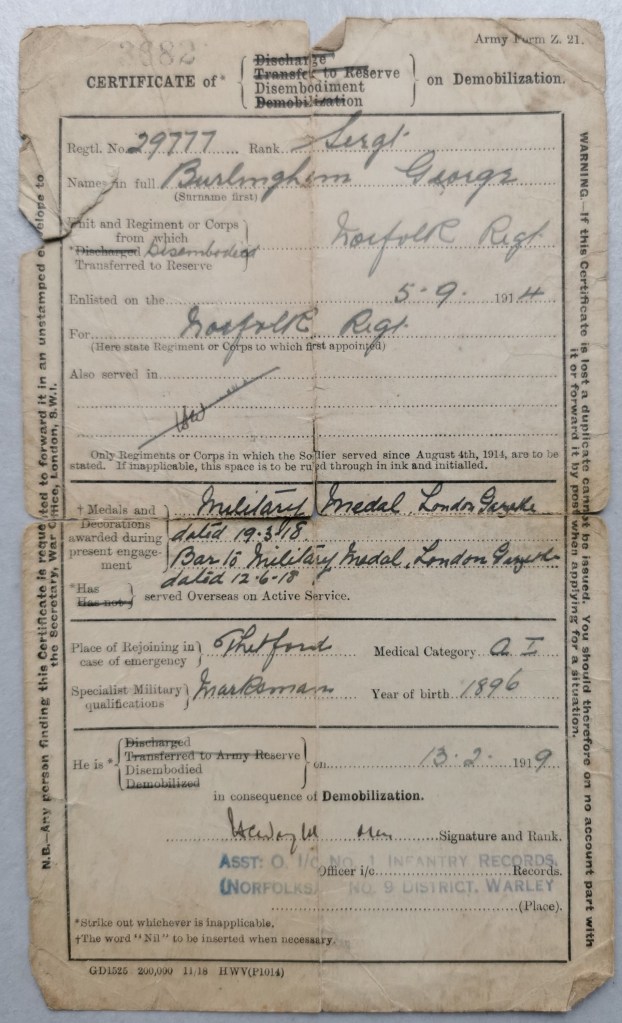 3982
Army Form Z. 21.
CERTIFICATE of * Discharge
Transfer to Reserve
Disembodiment
Demobilization on Demobilization.
Regtl. No. 29777 Rank Sergt.
Names in full Burlingham George
(Surname first)
Unit and Regiment or Corps
from which
*Discharged Disembodied Norfolk Regt
Transferred to Reserve
Enlisted on the 5-9- 1914
For Norfolk Regt.
(Here state Regiment or Corps to which first appointed)
Also served in
Only Regiments or Corps in which the Soldier served since August 4th, 1914, are to be
stated. If inapplicable, this space is to be ruled through in ink and initialled.
† Medals and
Decorations
awarded during
present engage-
ment
Military Medal. London Gazette
dated 19-3-18
Bar to Military Medal, London Gazette
dated 12-6-18
*Has
Has not served Overseas on Active Service.
Place of Rejoining in
case of emergency Thetford Medical Category A I
Specialist Military
qualifications Marksman Year of birth 1896
He is * Discharged
Transferred to Army Reserve
Disembodied
Demobilized on 13-2- 1919
in consequence of Demobilization.
Signature and Rank.
Officer i/c Records.
ASST: O. I/C NO. 1 INFANTRY RECORDS.
(NORFOLKS) NO. 9 DISTRICT, WARLEY
(Place).
*Strike out whichever is inapplicable.
†The word "Nil" to be inserted when necessary.
GD1525 200,000 11/18 HWV(P1014)
N.B.—Any person finding this Certificate is requested to forward it in an unstamped envelope to
the Secretary, War Office, London, S.W.1.
WARNING.—If this Certificate is lost a duplicate cannot be issued. You should therefore on no account part with
it or forward it by post when applying for a situation.